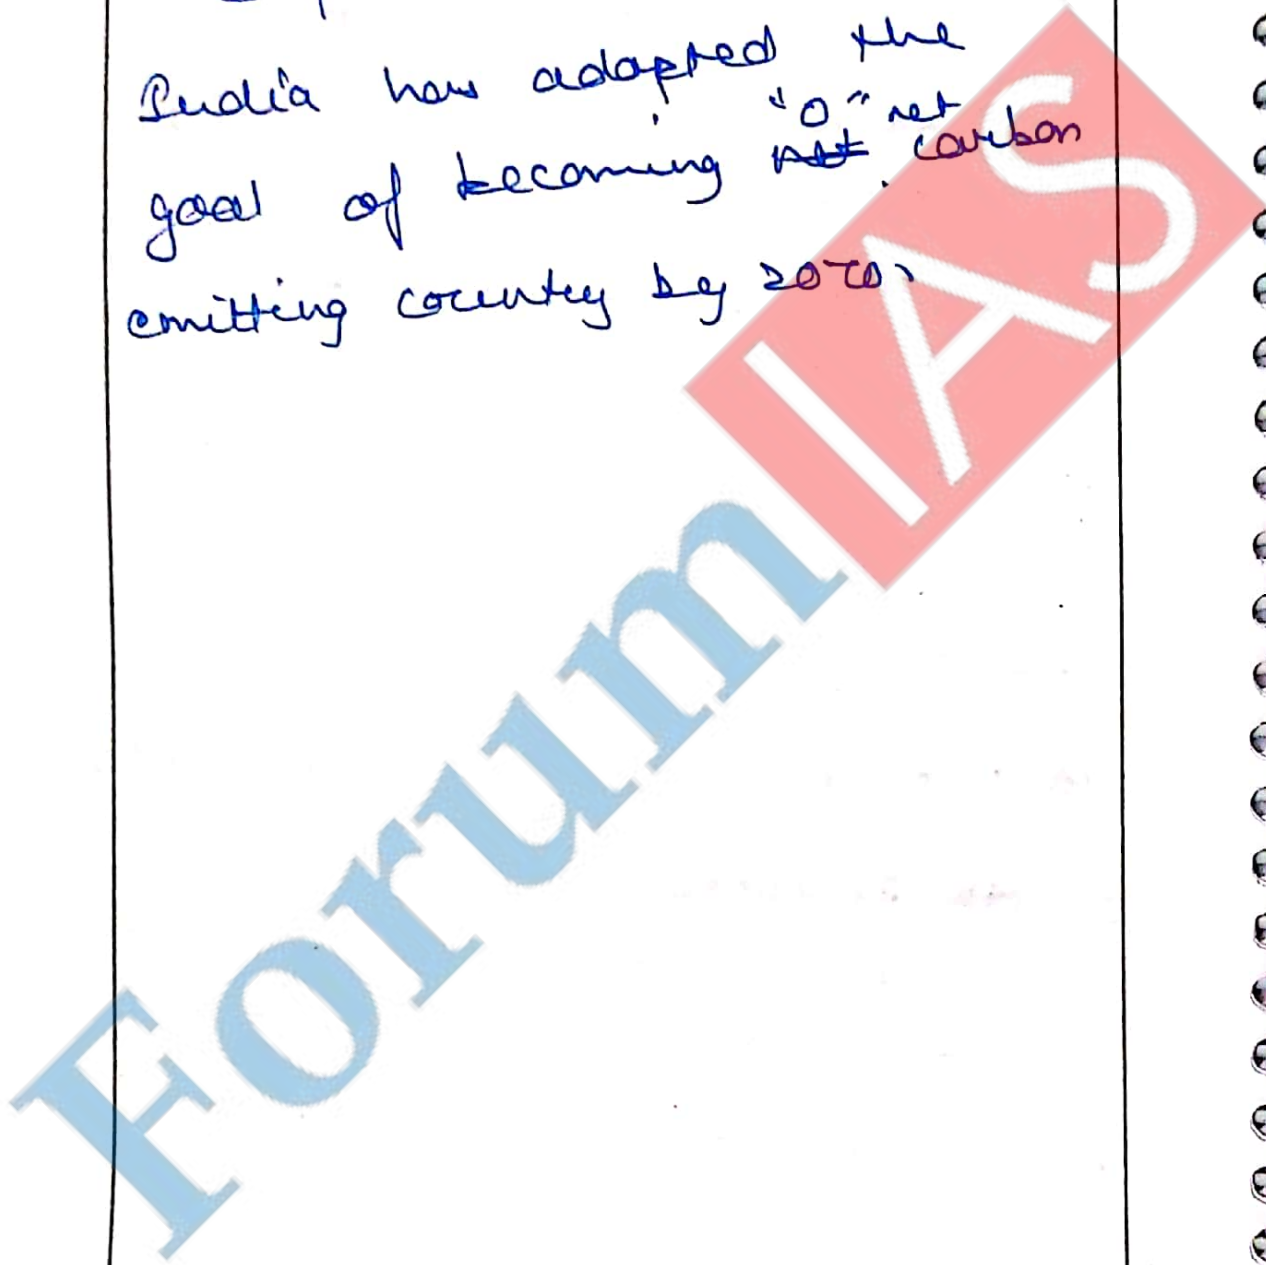 India has adopted the
goal of becoming "0" net carbon
emitting country by 2070.
ForumIAS